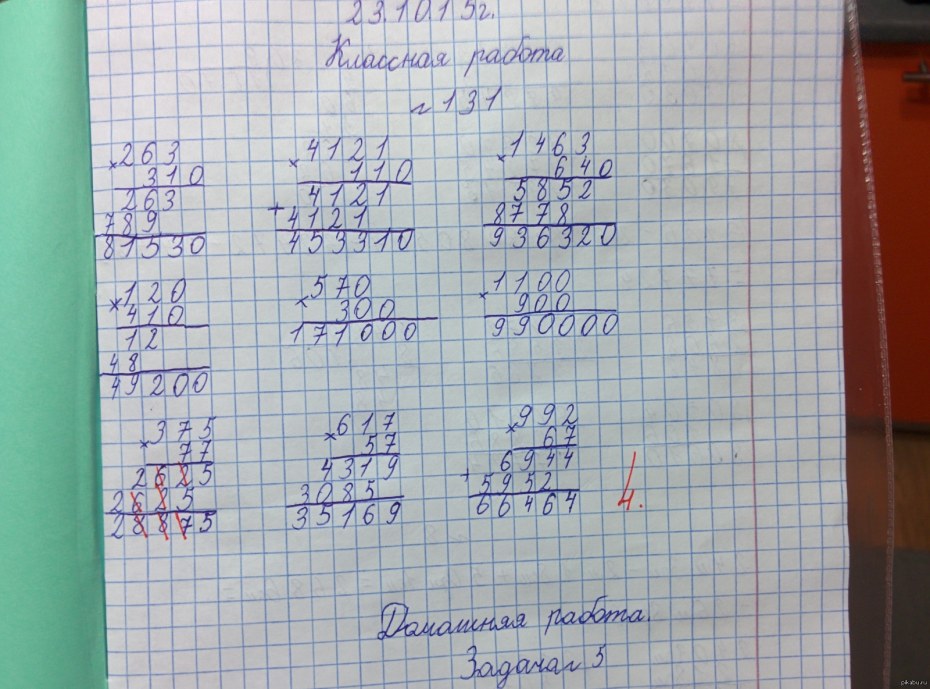 23.10.15г.
Классная работа
№131
×263
310
263
789
81530
×4121
110
+4121
4121
453310
×1463
640
5852
8778
936320
×120
410
12
48
49200
×570
300
171000
×1100
900
990000
×375
77
2625
2625
28875
×617
57
4319
3085
35169
×992
67
+6944
5952
66464
4.
Домашняя работа.
Задача№5
pikabu.ru